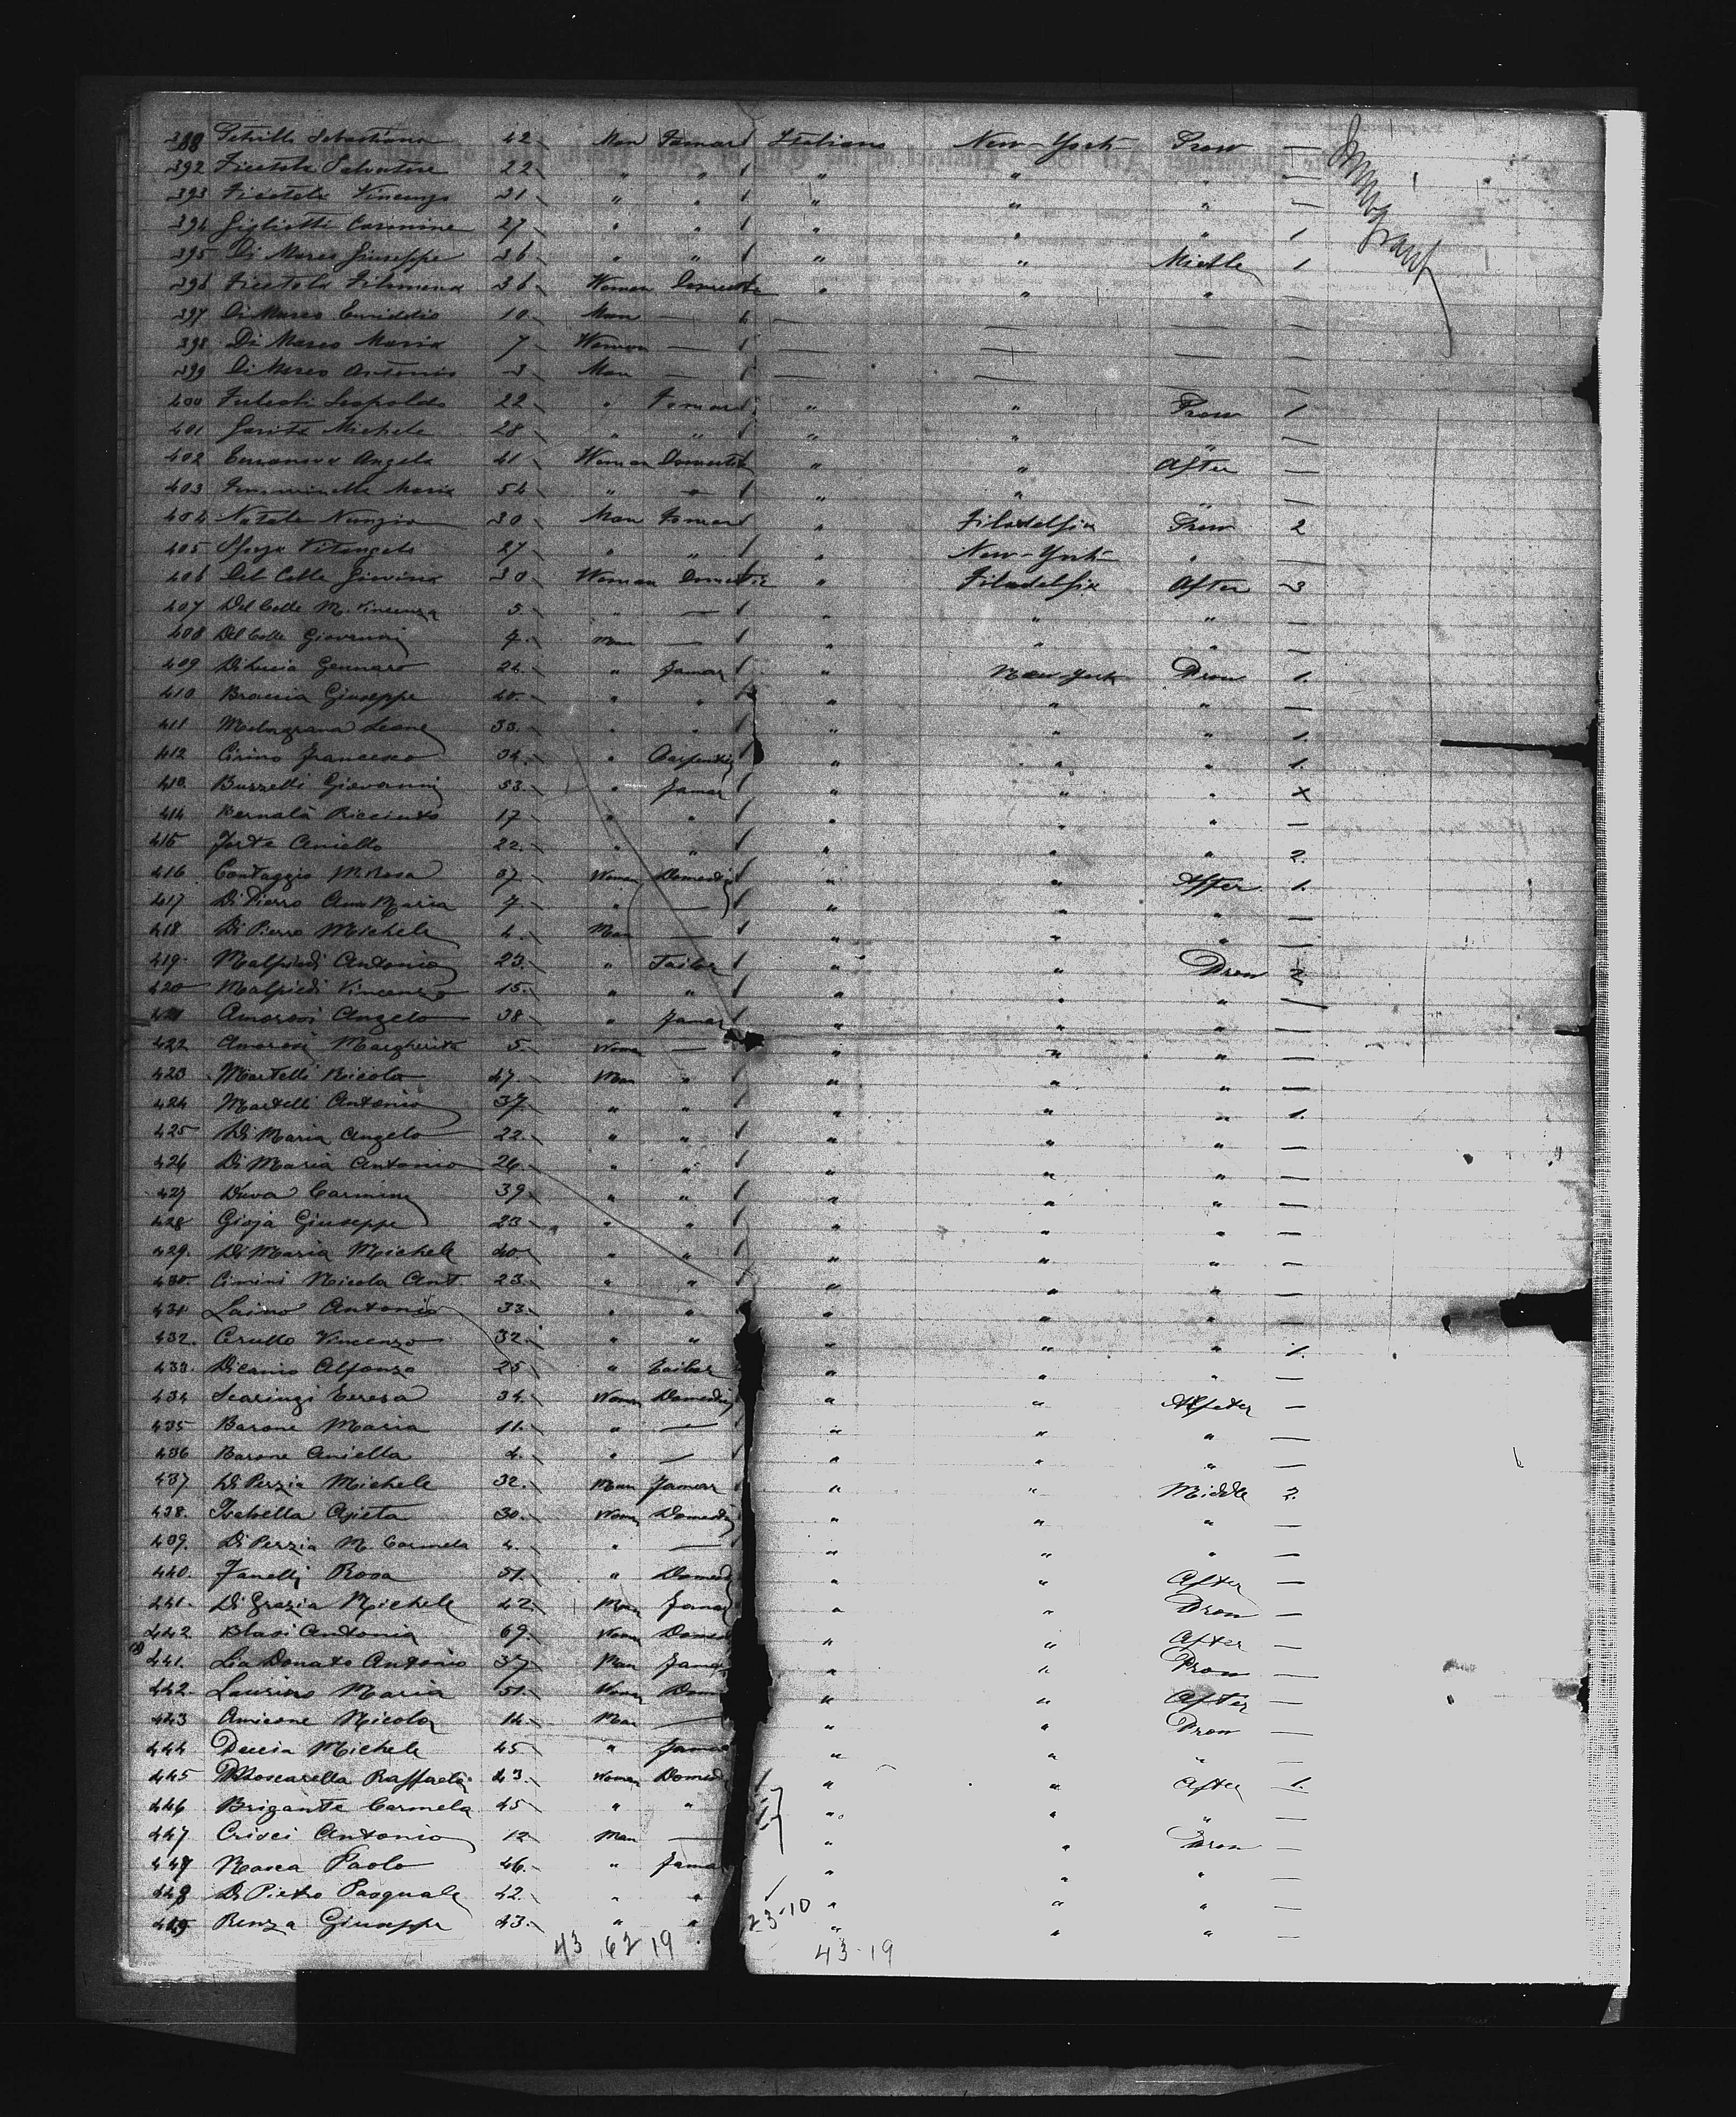 388 Petrillo Sebastiano 42 Man Farmar Italians New-York Prow —
392 Ficetola Salvatore 22 " " " " " —
393 Ficetola Vincenzo 21 " " " " " —
394 Giglietti Carmine 27 " " " " " 1
395 Di Marco Giuseppe 36 " " " " Middle 1
396 Ficetola Filomena 36 Woman Domestic " " " —
397 Di Marco Emiddio 10 Man — — — — —
398 Di Marco Maria 7 Woman — — — — —
399 Di Marco Antonio 3 Man — — — — —
400 Leopoldo 22 " Farmar " " Prow 1
401 Garita Michele 28 " " " " " —
402 Angela 41 Woman Domestic " " After —
403 Maria 54 " " " " " —
404 Natale Nunzio 30 Man Farmar " Filadelfia Prow 2
405 Sforza Vitangelo 27 " " " New-York " —
406 Del Colle Giovina 30 Woman Domestic " Filadelfia After 3
407 Del Colle M. Vincenza 5 " — " " " —
408 Del Colle Giovanni 4. Man — " " " —
409 Di Lucia Gennaro 24. " Farmar " New-York Prow 1.
410 Braccia Giuseppe 40. " " " " " —
411 Melagrana Leone 33. " " " " " 1.
412 Cirino Francesco 34. " Carpenter " " " 1.
413. Buzzelli Giovanni 53. " Farmar " " " X
414 Bernalà Ricciuto 17 " " " " " —
415 Forte Aniello 22. " " " " " 2.
416 Contaggio M. Rosa 37 Woman Domestic " " After 1.
417 Di Pierro Anna Maria 7 " — " " " —
418. Di Pierro Michele 4. Man — " " " —
419. Malpiedi Antonio 23 " Tailor " " Prow 2
420 Malpiedi Vincenzo 15. " " " " " —
421 Amorosi Angelo 38 " Farmar " " " —
422 Amorosi Margherita 5. Woman — " " " —
423 Martelli Nicola 47. Man " " " " —
424 Martelli Antonio 37 " " " " " 1.
425 Di Maria Angelo 22. " " " " " —
426 Di Maria Antonio 26. " " " " " —
427 Duva Carmine 39 " " " " " —
428 Gioja Giuseppe 23 " " " " " —
429. Di Maria Michele 40 " " " " " —
430. Cimini Nicola Ant 23. " " " " " —
431 Laino Antonio 33. " " " " " —
432. Cerullo Vincenzo 32. " " " " " 1.
433. Dicanio Alfonzo 25 " Tailor " " " —
434 Scaringi Teresa 34. Woman Domestic " " After —
435 Barone Maria 11. " — " " " —
436 Barone Aniella 4. " — " " " —
437 Di Perzia Michele 32. Man Farmar " " Middle 2.
438. Isabella Agieta 30. Woman Domestic " " " —
439. Di Perzia M. Carmela 4. " — " " " —
440. Fanelli Rosa 51. " Domestic " " After —
441. Di Grazia Michele 42 Man Farmar " " Prow —
442. Blasi Antonia 69. Woman Domes " " After —
441. Lia Donato Antonio 37 Man Farmar " " Prow —
442. Laurino Maria 51. Woman Dom " " After —
443 Amicone Nicola 14. Man — " " Prow —
444 Duccia Michele 45. " Farma " " " —
445 Moscarella Raffaela 43. Woman Domest " " After 1.
446 Brigante Carmela 45 " " " " " —
447 Crisci Antonio 12 Man — " " Prow —
447 Rosca Paolo 46. " Farma " " " —
448 Di Pietro Pasquale 42. " " " " " —
449 Renza Giuseppe 43. " " " " " —
23-10
43 62 19 43-19